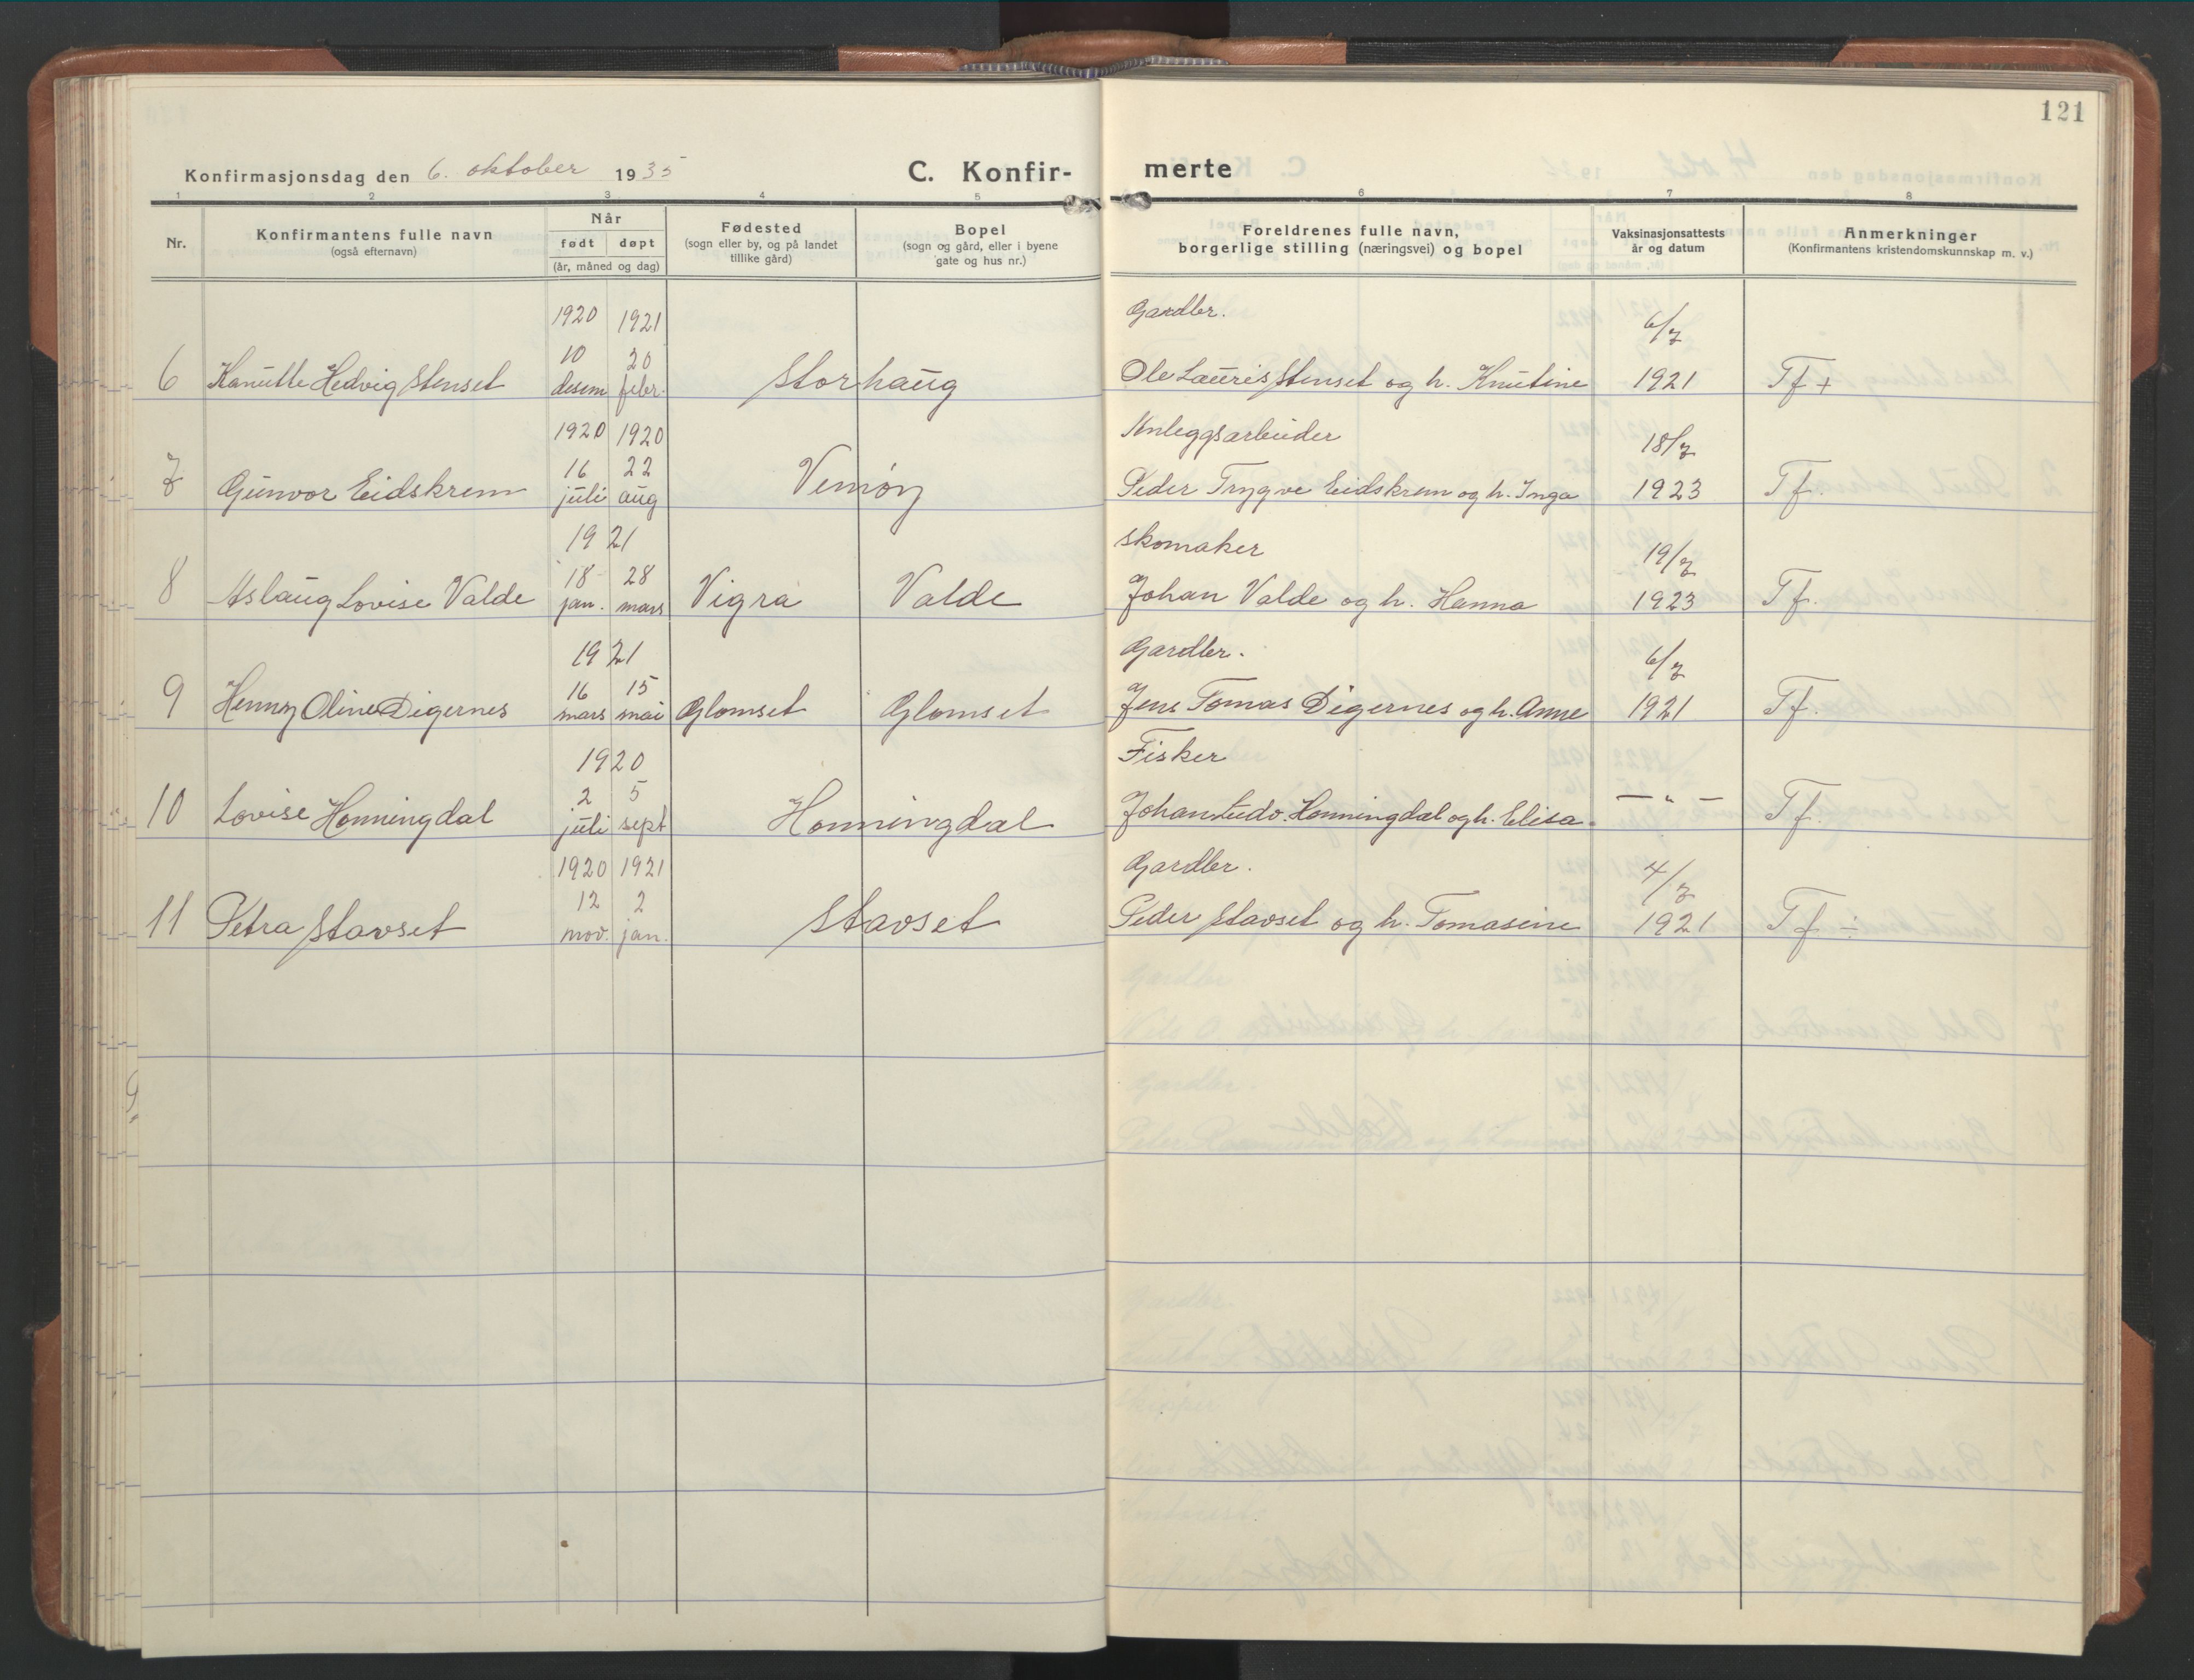 121
Konfirmasjonsdag den 6. oktober 1935 C. Konfir- merte
1 2 3 4 5 6 7 8
Nr. Konfirmantens fulle navn (også efternavn) Når født døpt (år, måned og dag) Fødested (sogn eller by, og på landet tillike gård) Bopel (sogn og gård, eller i byene gate og hus nr.) Foreldrenes fulle navn, borgerlige stilling (næringsvei) og bopel Vaksinasjonsattests år og datum Anmerkninger (Konfirmantens kristendomskunnskap m. v.)
1920 1921 Gardbr. 6/7
10 20
6 Kanutte Hedvig Stenset desem febr. Storhaug Ole Lauris Stenset og h. Knutine 1921 Tf +
1920 1920 Anleggsarbeider 18/7
16 22
7 Gunvor Eidskrem juli aug Vemøy Peder Trygve Eidskrem og h. Inga 1923 Tf.
1921 Skomaker 19/7
18 28
8 Aslaug Lovise Valde jan. mars Vigra Valde Johan Valde og h. Hanna 1923 Tf.
1921 Gardbr. 6/7
16 15
9 Henny Oline Digernes mars mai Glomset Glomset Jens Tomas Digernes og h. Anne 1921 Tf.
1920 Fisker
2 5
10 Lovise Honningdal juli sept Honningdal Johan Ludv. Honningdal og h. Elisa. — " — Tf.
1920 1921 Gardbr. 4/7
12 2
11 Petra Stavset nov. jan. Stavset Peder Stavset og h. Tomasine 1921 Tf ÷